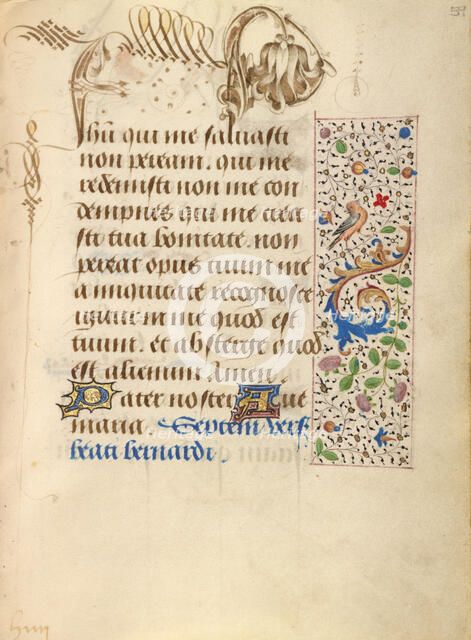 Ihu qui me saluasti
non peream. qui me
redemisti non me con
dempnes qui me crea
sti tua bonitate. non
pereat opus tuum me
a iniquitate recognosce
in me quod est
tuum. et absterge quod
est alienum. Amen
Pater noster Aue
maria. Septem vers
beati bernardi.